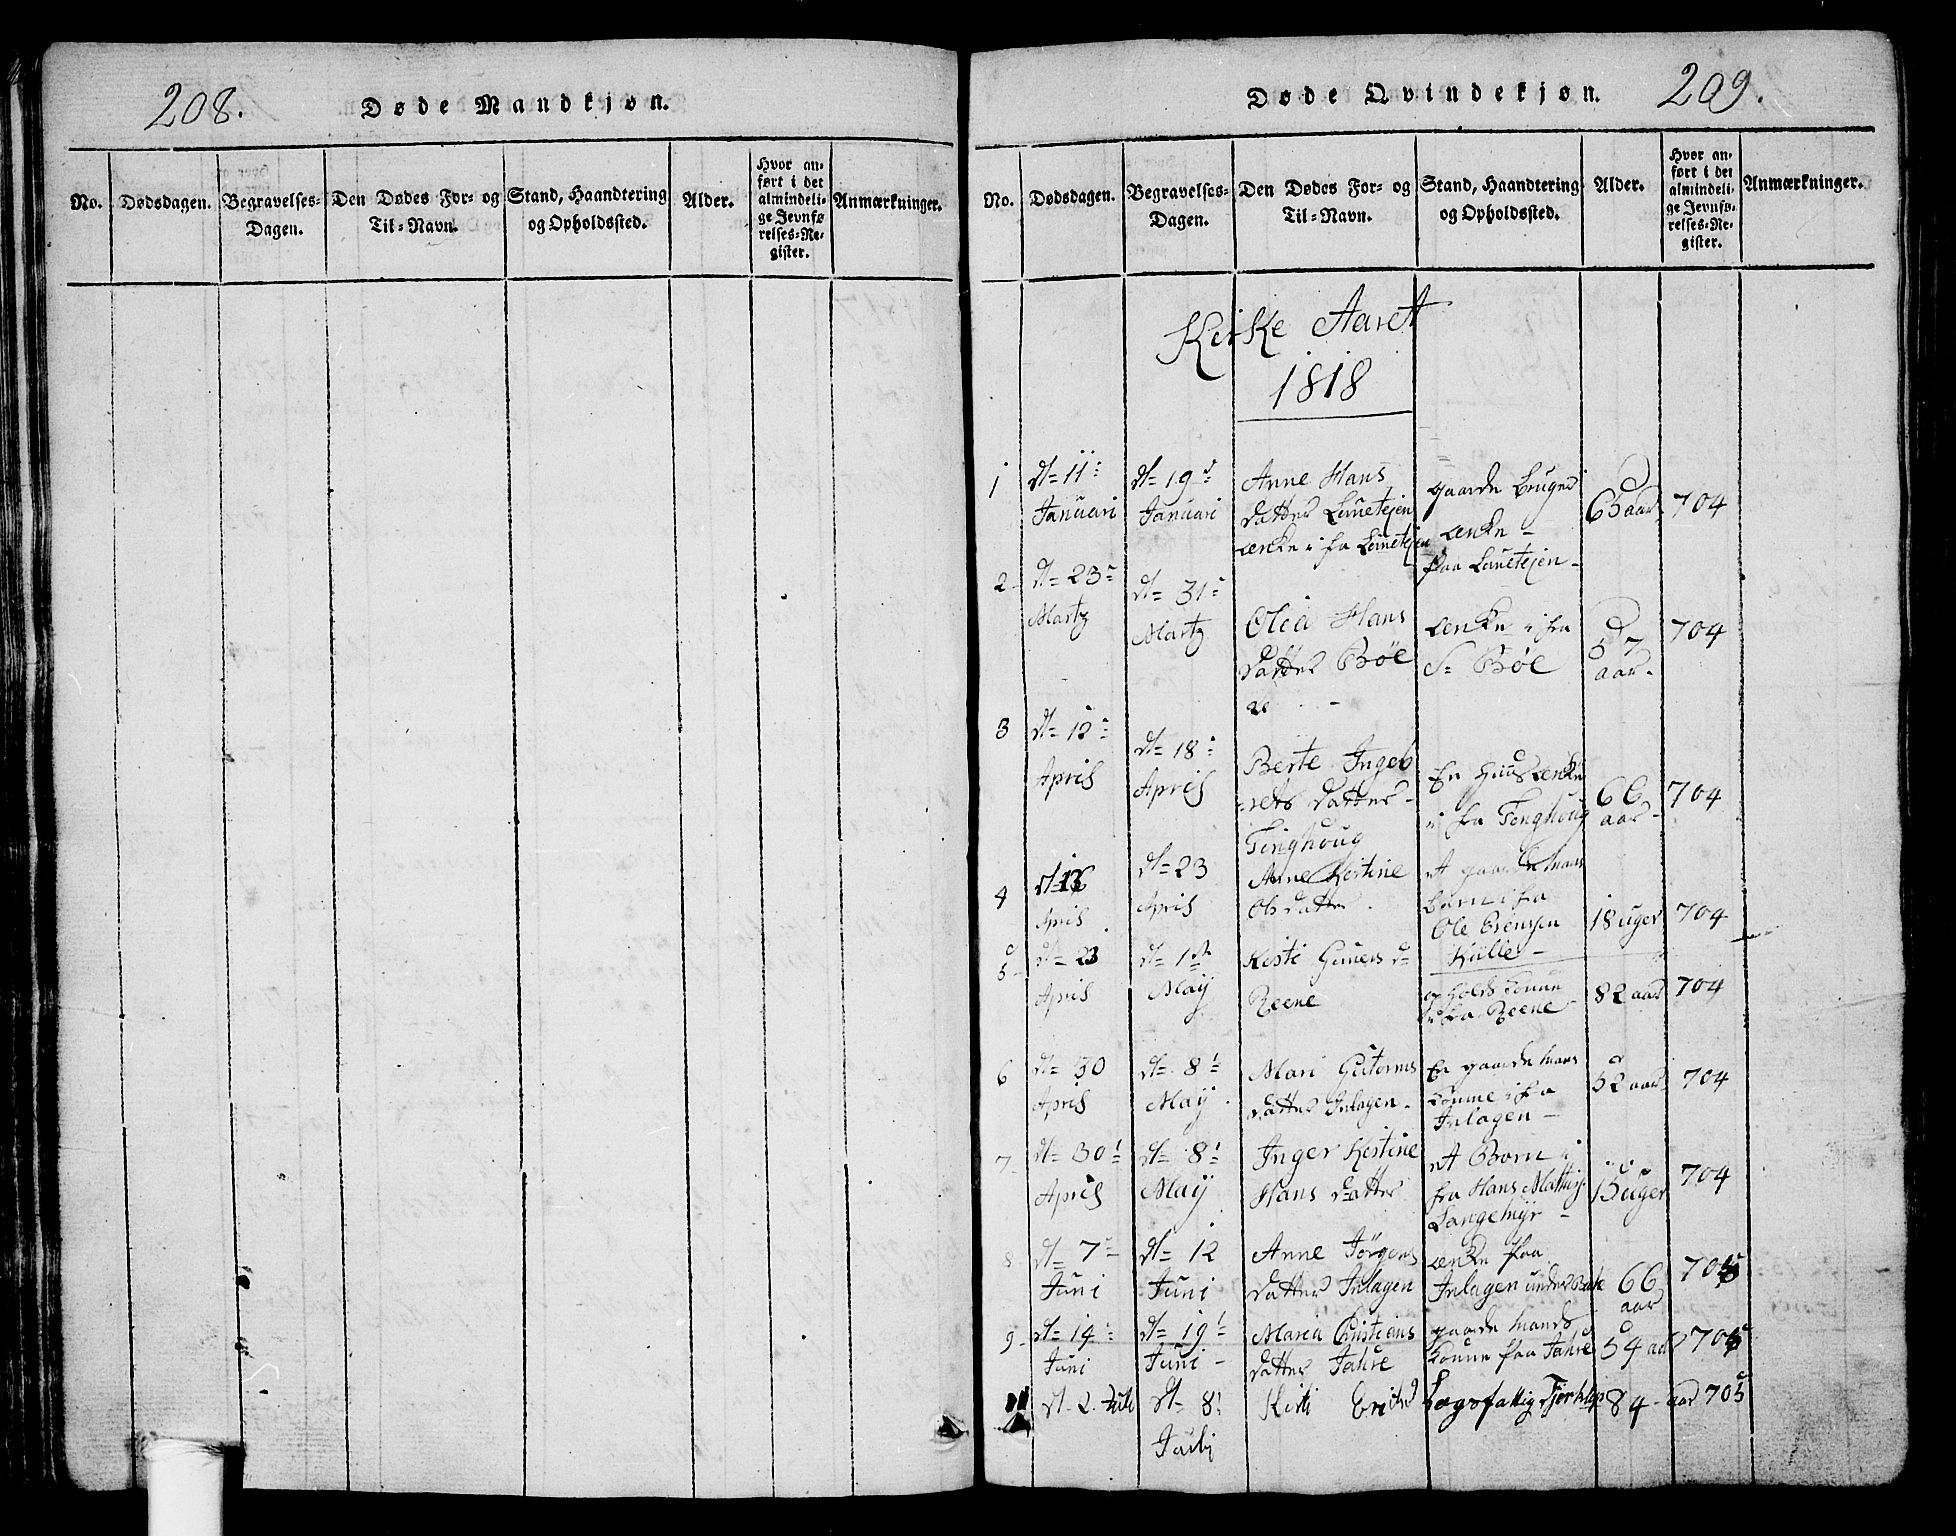 208.
Døde Mandkjøn.
No.
Dødsdagen.
Begravelses-
Dagen.
Den Dødes For- og
Til-Navn.
Stand, Haandtering
og Opholdssted.
Alder.
Hvor an-
ført i det
almindeli-
ge Jevnfø-
relses-Re-
gister.
Anmærkninger.
Døde Qvindekjøn.
209.
No.
Dødsdagen.
Begravelses-
Dagen.
Den Dødes For- og
Til-Navn.
Stand, Haandtering
og Opholdssted.
Alder.
Hvor an-
ført i det
almindeli-
ge Jevnfø-
relses-Re-
gister.
Anmærkninger.
Kirke Aaret
1818
1
d 11
Januari
d 19
Januari
Anne Hans
datter
enke i fra
gaarde bruger
enke
fra
65 aar
704
2
d 23
Martz
d 31
Martz
Olea Hans
datter Böe
enke i fra
S Böe
57
aar
704
3
d 12
April
d 18
April
Berte Ingeb
rets datter
Tinghoug
En huus enke
i fra Tinghoug
66
aar
704
4
April
d 23
April
Anne Kirstine
Ols datter
et gaarde mans
barn i fra
Ole
Kulle
18 uger
704
5
d 23
April
d 1
Maij
Kirsti
Reene
opholds konne
i fra Reene
82 aar
704
6
d 30
April
d 8
Maij
Mari Gutorms
datter Inlagen
En gaarde mans
konne i fra
Inlagen
52 aar
704
7
d 30
April
d 8
Maij
Inger Kirstine
Hans datter
et Born i
fra Hans
Langemyr
15 uger
704
8
d 7
Juni
d 12
Juni
Anne Jörgens
datter Inlagen
enke fra
Inlagen under
66
aar
705
9
d 14
Juni
d 19
Juni
Maria Christens
datter Jahre
gaarde mands
konne fra Jahre
54 aar
705
d 2. Juli
d 8
Julij
Kirsti
Lægsfattig
84 aar
705